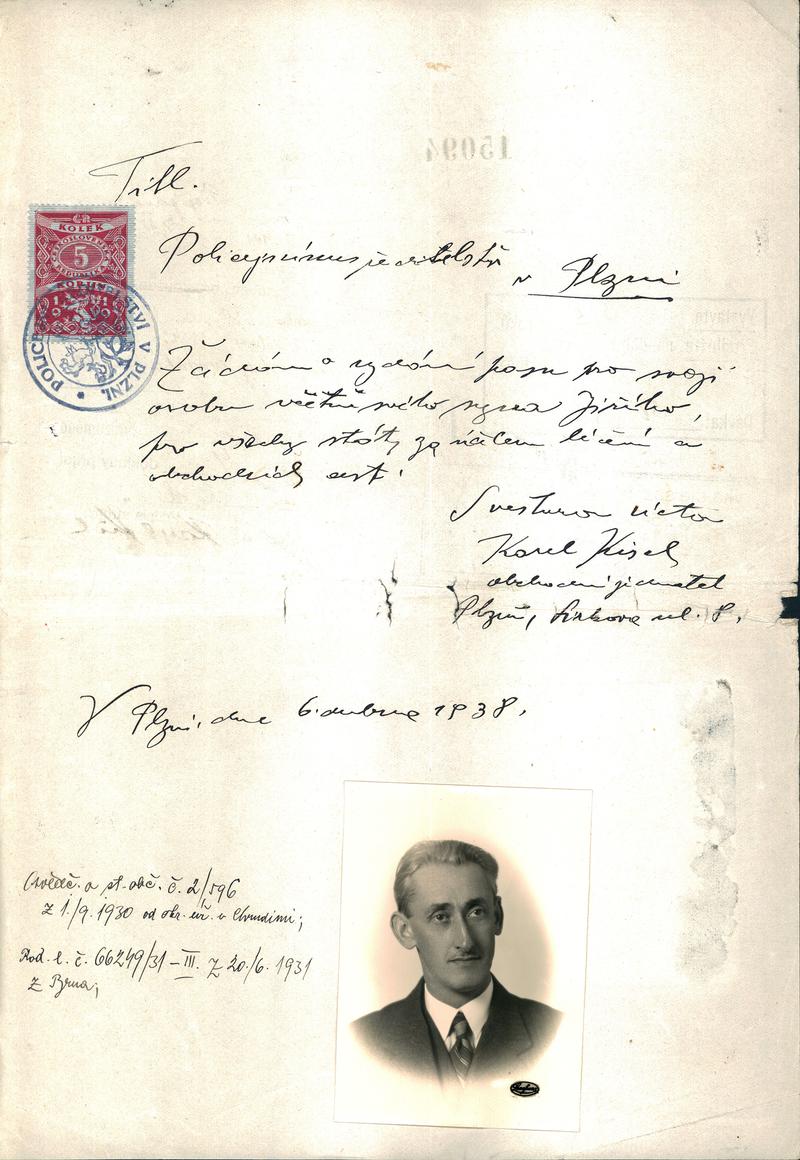 15094
Titl.
ČR
KOLEK
5
1919
POLICEJNÍ ŘEDITELSTVÍ V PLZNI
Policejnímu ředitelství
v Plzni
Žádám o vydání pasu pro svoji
osobu včetně svého syna Jiřího,
pro všechny státy za účelem léčení a
obchodních cest.
V veškeré úctě
Karel Kisch
obchodní jednatel
Plzeň, ul. 8.
V Plzni, dne 6. dubna 1938.
Osvědč. o st. obč. č. 2/596
z 1./9. 1930 od okr. úř. v Chrudimi;
Rod. l. č. 66249/31 – III. z 20./6. 1931
z Brna;